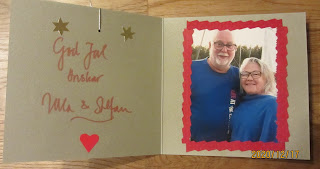 God Jul
önskar
Ulla & Stefan